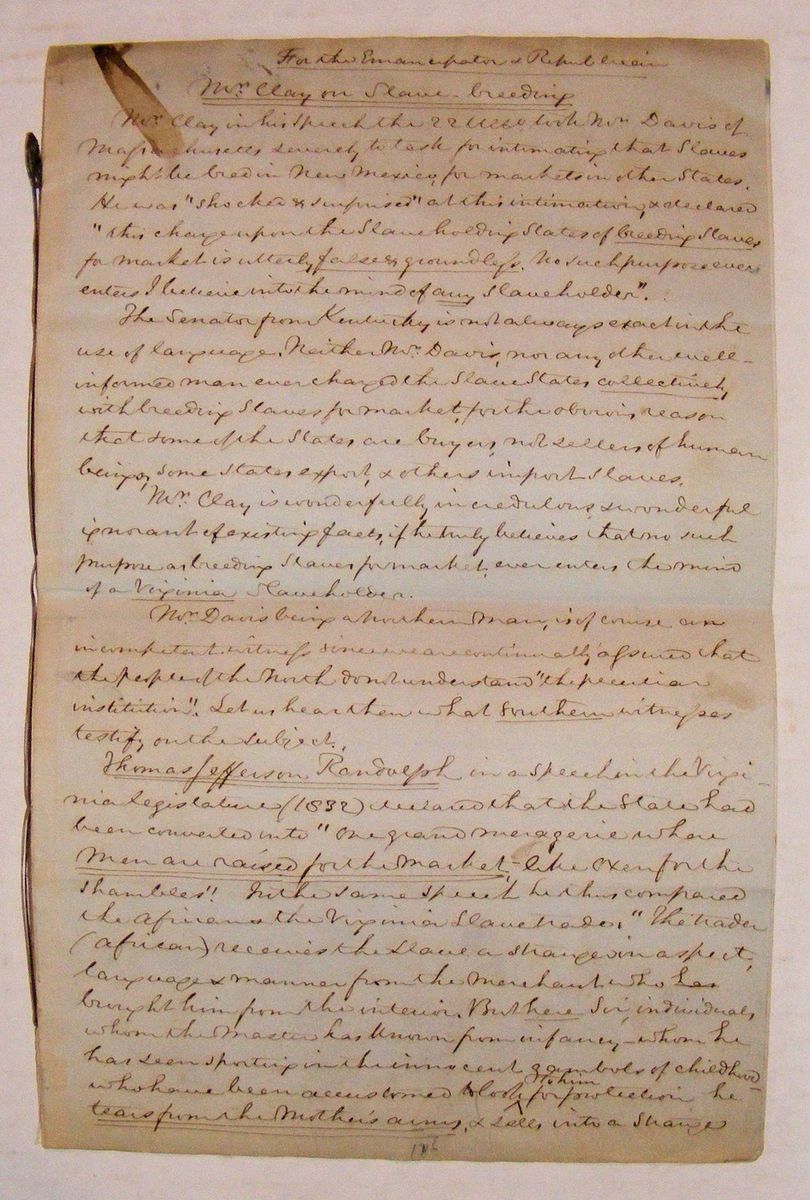 For the Emancipator & Republican
Mr. Clay on Slave-breeding
Mr. Clay in his speech the 22 Ult. took Mr. Davis of
Massachusetts severely to task for intimating that Slaves
might be bred in New Mexico, for markets in other States.
He was "shocked & surprised" at this intimation, & declared
"this charge upon the Slaveholding States of breeding Slaves
for market is utterly false & groundless. No such purpose ever
enters I believe into the mind of any Slaveholder".
The Senator from Kentucky is not always exact in the
use of language. Neither Mr. Davis, nor any other well-
informed man ever charged the Slave States collectively,
with breeding Slaves for market, for the obvious reason
that some of the States are buyers, not sellers of human
beings, Some States export, & others import Slaves.
Mr. Clay is wonderfully incredulous & wonderful
ignorant of existing facts, if he truly believes that no such
purpose as breeding Slaves for market, ever enters the mind
of a Virginia Slaveholder.
Mr. Davis being a Northern Man, is of course an
incompetent witness since we are continually assured that
the people of the North do not understand "the peculiar
institution". Let us hear then what Southern witnesses
testify on the subject.
Thomas Jefferson Randolph in a speech in the Virgi-
nia legislature (1832) declared that the State had
been converted into "One grand menagerie where
Men are raised for the Market, like Oxen for the
Shambles"! In the same speech he thus compared
the African & the Virginia Slave trade. "The trader
(African) receives the Slave a stranger in aspect,
language & manner from the Merchant who has
brought him from the interior. But here Sir, individuals
whom the Master has known from infancy – whom he
has seen sporting in the innocent gambols of childhood –
who have been accustomed to look to him for protection he
tears from the Mother's arms, & sells into a Strange